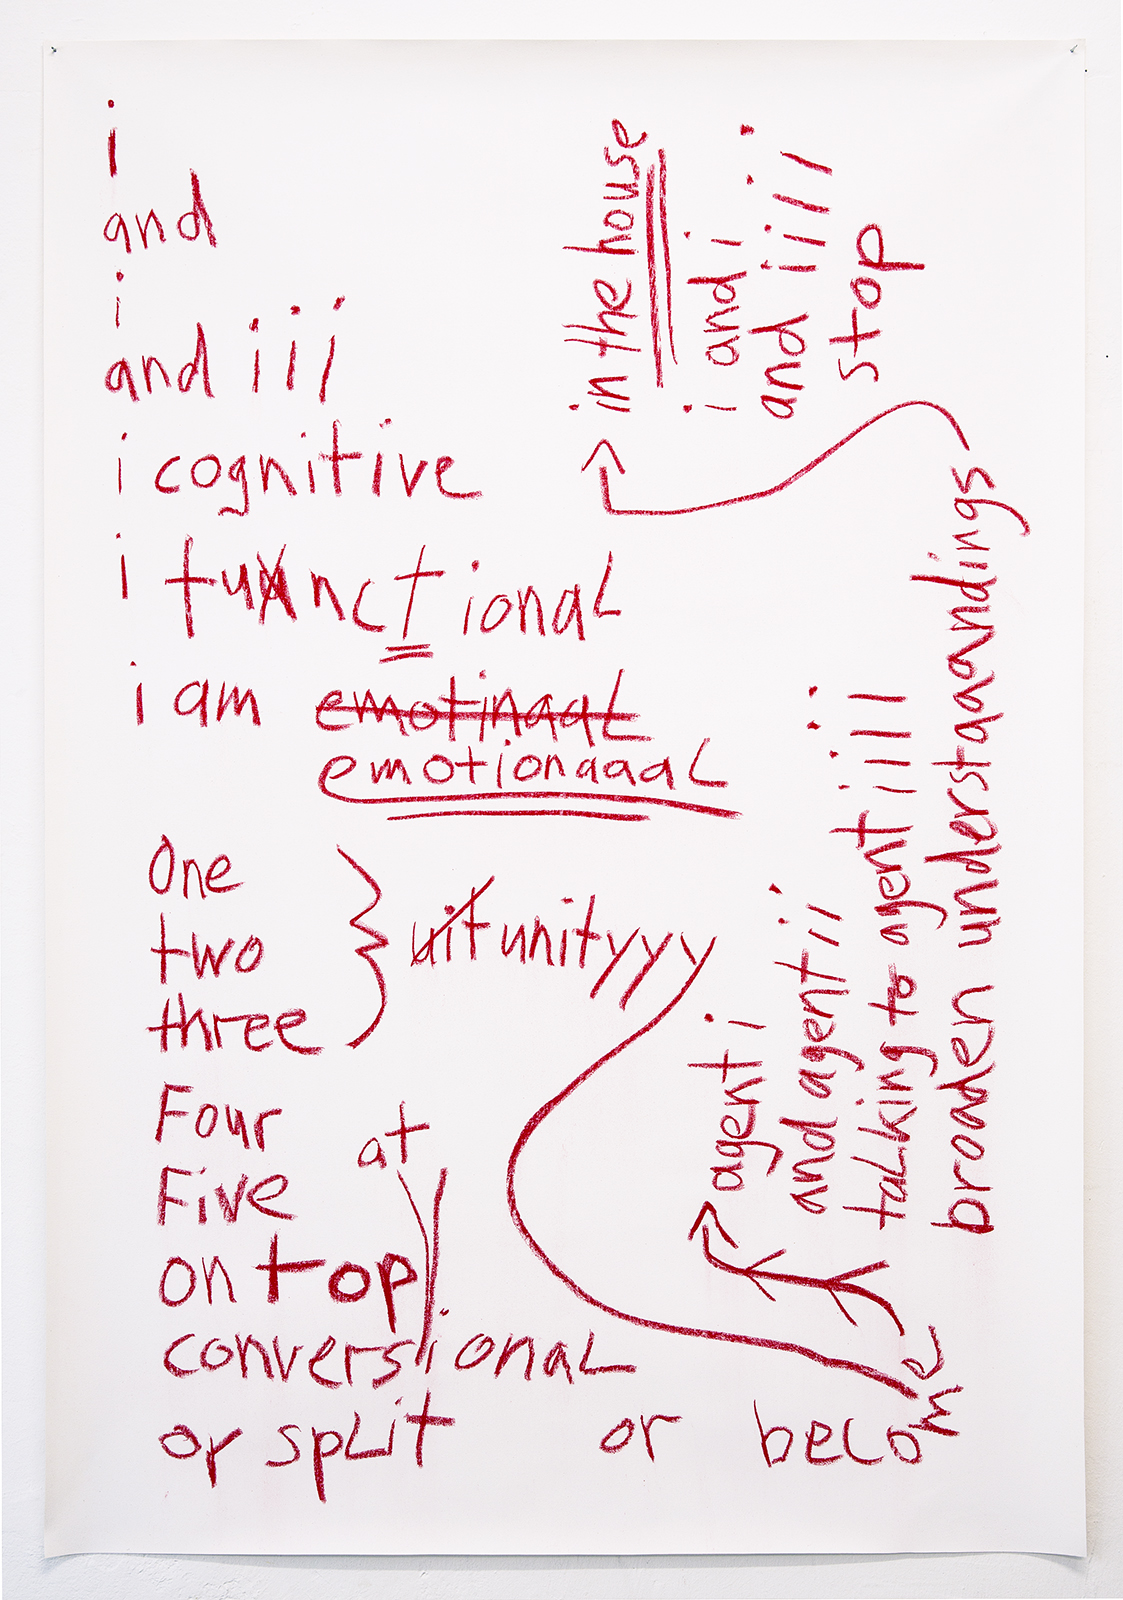 i
and
i
and iii
i cognitive
i functional
i am emotinaal
emotionaaal
One
two
three
uit unityyy
Four
Five
at
on top
conversional
or split or become
agent i
and agent ii
talking to agent iiii
broaden understaaandings
in the house
i and i
and iiii
stop